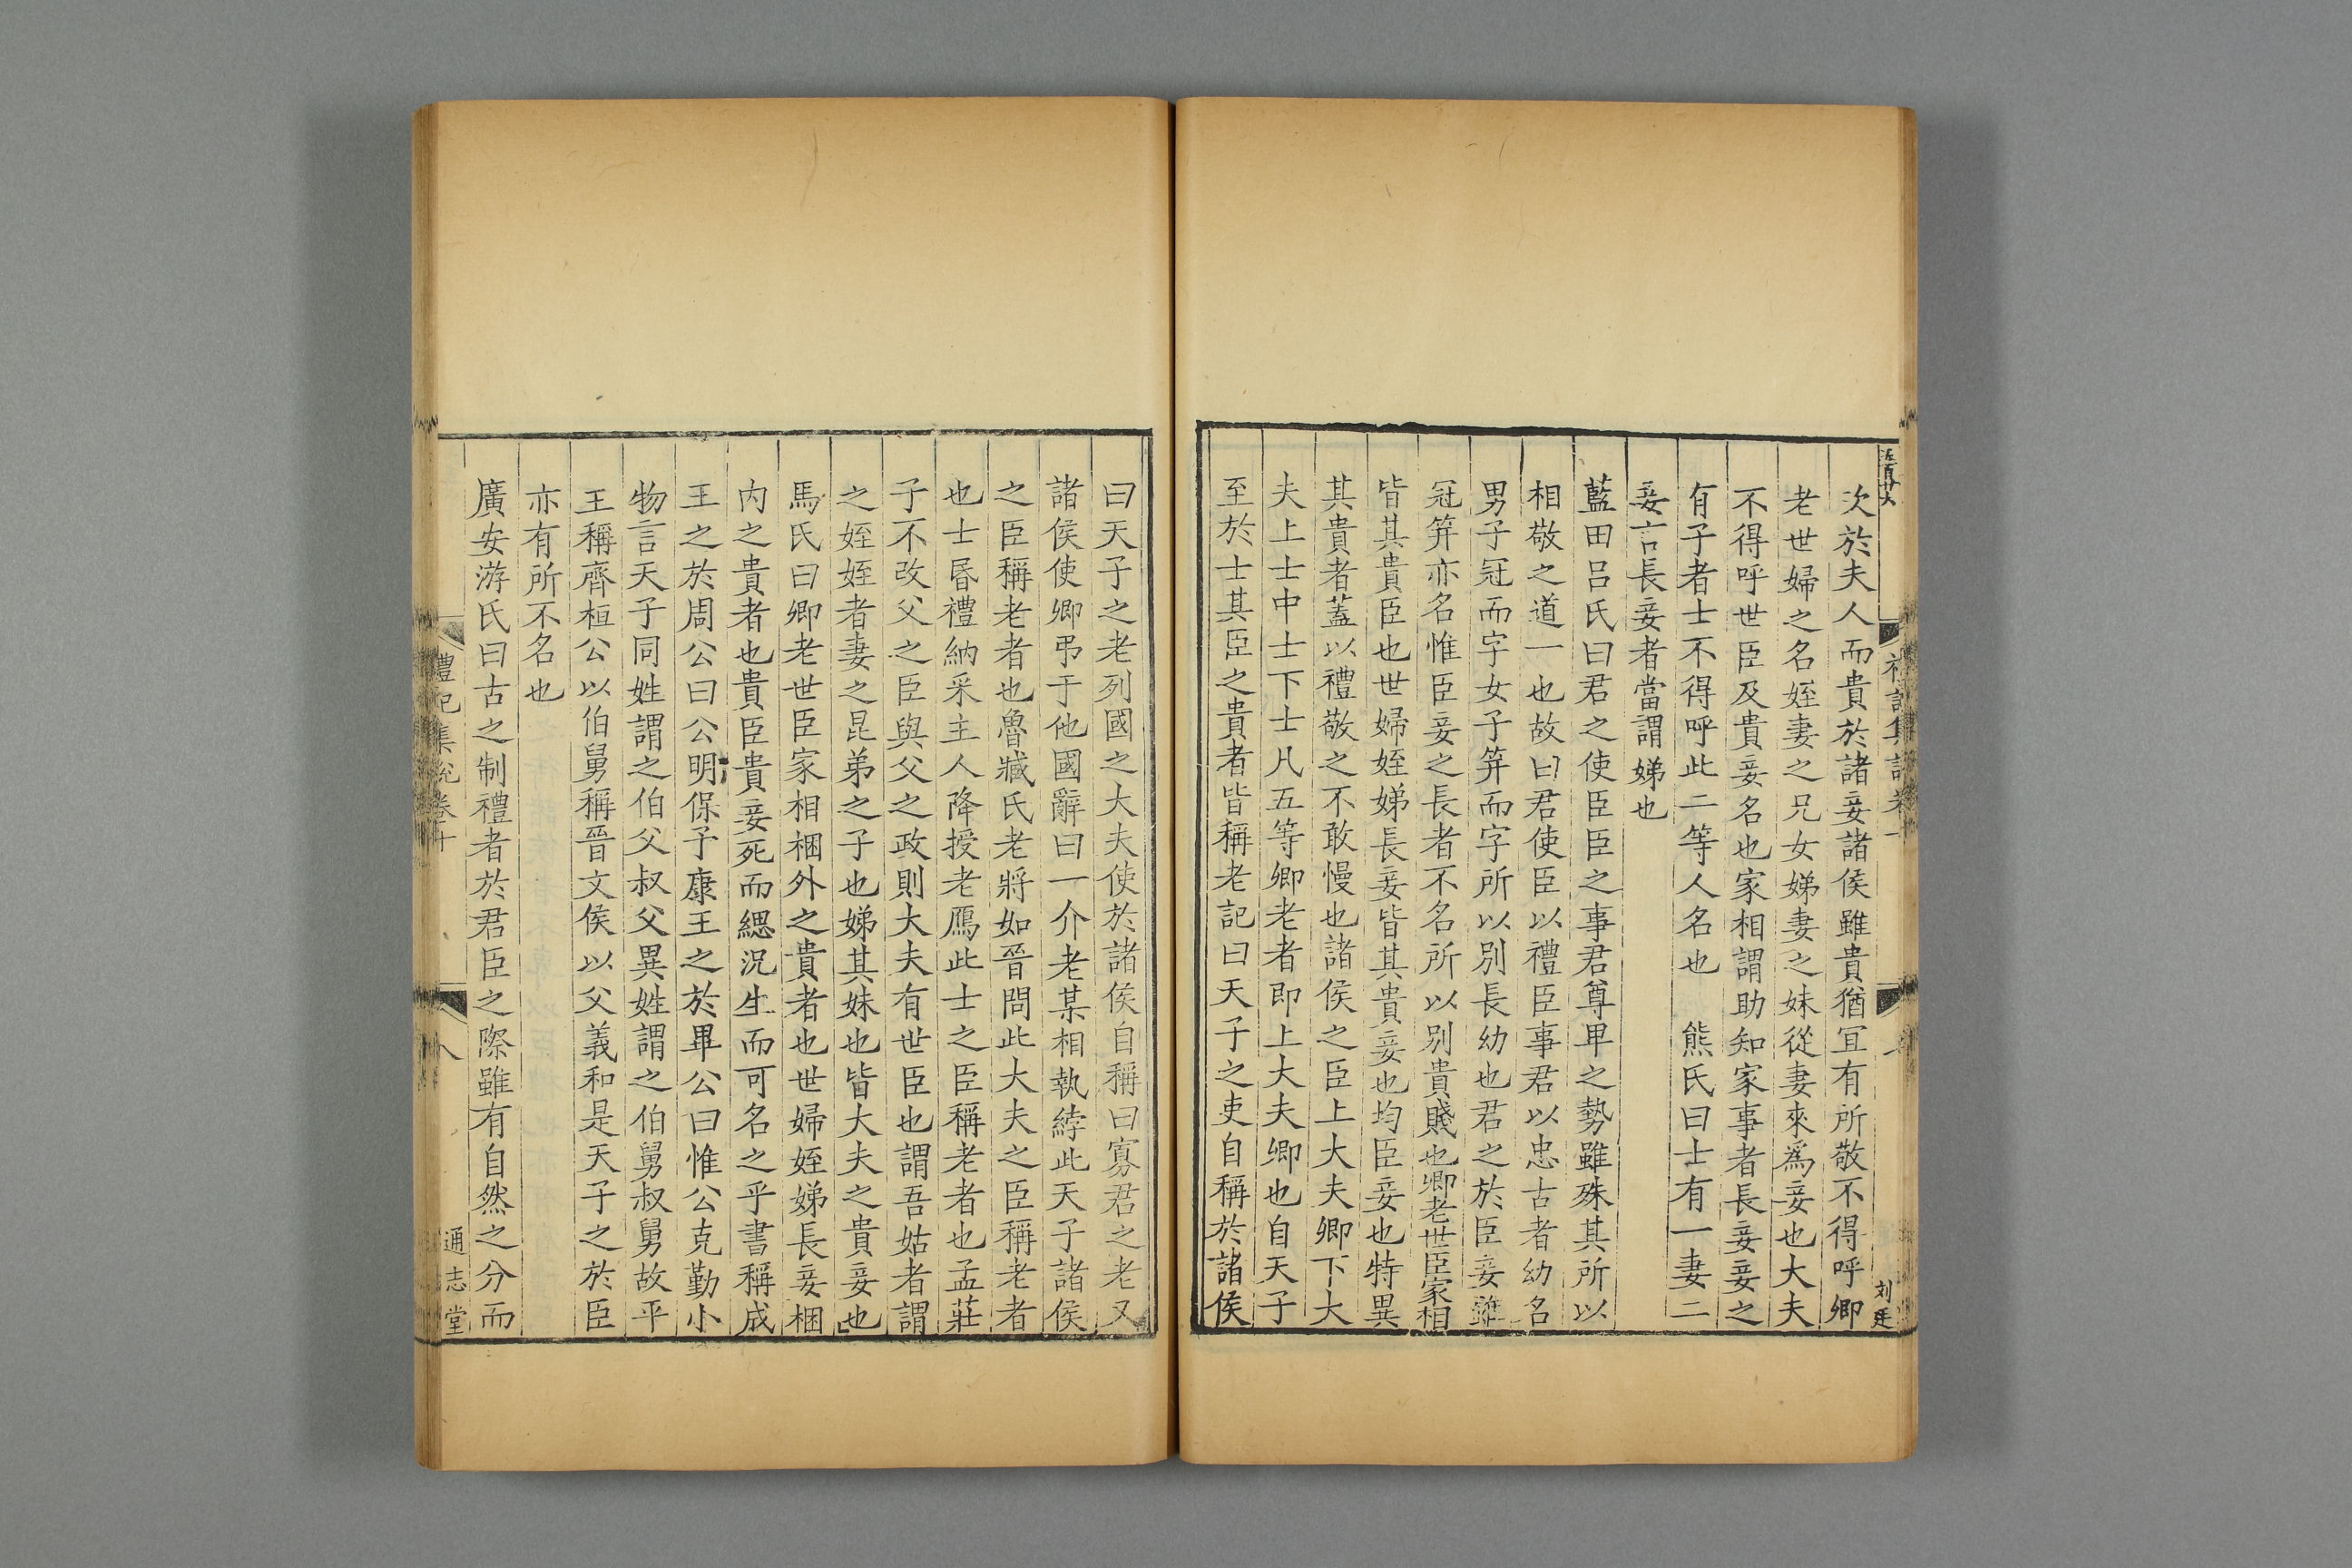 次於夫人而貴於諸妾諸侯雖貴猶冝有所敬不得呼卿
老世婦之名姪妻之兄女娣妻之妹從妻來爲妾也大夫
不得呼世臣及貴妾名也家相謂助知家事者長妾妾之
有子者士不得呼此二等人名也 熊氏曰士有一妻二
妾言長妾者當謂娣也
藍田呂氏曰君之使臣臣之事君尊卑之勢雖殊其所以
相敬之道一也故曰君使臣以禮臣事君以忠古者幼名
男子冠而字女子筓而字所以別長幼也君之於臣妾雖
冠筓亦名惟臣妾之長者不名所以別貴賤也卿老世臣家相
皆其貴臣也世婦姪娣長妾皆其貴妾也均臣妾也特異
其貴者蓋以禮敬之不敢慢也諸侯之臣上大夫卿下大
夫上士中士下士凡五等卿老者即上大夫卿也自天子
至於士其臣之貴者皆稱老記曰天子之吏自稱於諸侯
刘廷
曰天子之老列國之大夫使於諸侯自稱曰寡君之老又
諸侯使卿弔于他國辭曰一介老某相執綍此天子諸侯
之臣稱老者也魯臧氏老將如晉問此大夫之臣稱老者
也士昏禮納采主人降授老鴈此士之臣稱老者也孟莊
子不改父之臣與父之政則大夫有世臣也謂吾姑者謂
之姪姪者妻之昆弟之子也娣其妹也皆大夫之貴妾也
馬氏曰卿老世臣家相梱外之貴者也世婦姪娣長妾梱
内之貴者也貴臣貴妾死而緦況生而可名之乎書稱成
王之於周公曰公明保予康王之於畢公曰惟公克勤小
物言天子同姓謂之伯父叔父異姓謂之伯舅叔舅故平
王稱齊桓公以伯舅稱晉文侯以父義和是天子之於臣
亦有所不名也
廣安游氏曰古之制禮者於君臣之際雖有自然之分而
禮記集說卷十
八
通志堂